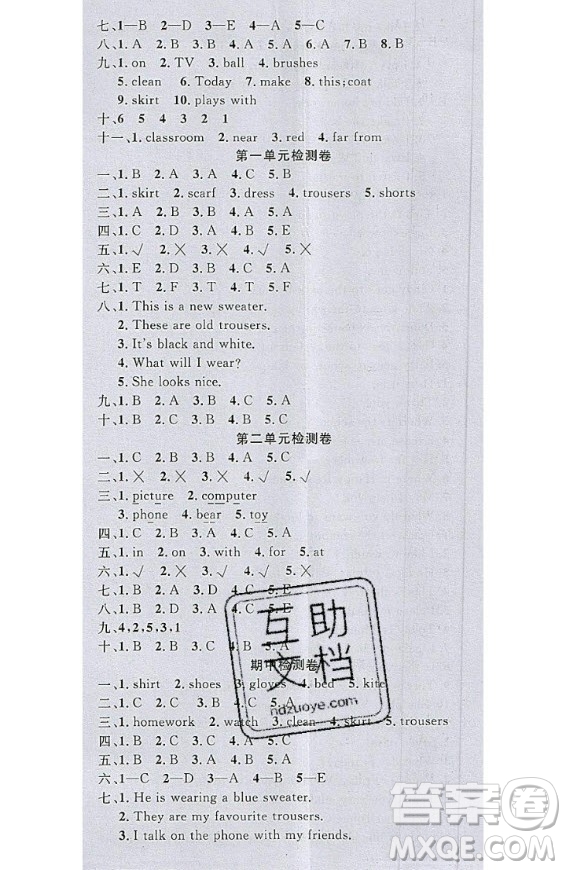 七、1—B 2—D 3—E 4—A 5—C
八、1. A 2. B 3. A 4. B 5. A 6. A 7. B 8. B
九、1. on 2. TV 3. ball 4. brushes
5. clean 6. Today 7. make 8. this;coat
9. skirt 10. plays with
十、6 5 4 3 2 1
十一、1. classroom 2. near 3. red 4. far from
第一单元检测卷
一、1. B 2. A 3. A 4. C 5. B
二、1. skirt 2. scarf 3. dress 4. trousers 5. shorts
三、1. A 2. B 3. B 4. A 5. A
四、1. C 2. D 3. B 4. E 5. A
五、1. √ 2. × 3. × 4. √ 5. ×
六、1. E 2. D 3. B 4. A 5. C
七、1. T 2. F 3. T 4. T 5. F
八、1. This is a new sweater.
2. These are old trousers.
3. It's black and white.
4. What will I wear?
5. She looks nice.
九、1. B 2. A 3. B 4. C 5. A
十、1. B 2. B 3. C 4. A 5. A
第二单元检测卷
一、1. C 2. B 3. A 4. A 5. C
二、1. × 2. × 3. √ 4. √ 5. √
三、1. picture 2. computer
3. phone 4. bear 5. toy
四、1. C 2. B 3. A 4. C 5. A
五、1. in 2. on 3. with 4. for 5. at
六、1. √ 2. × 3. √ 4. √ 5. ×
七、1. B 2. A 3. D 4. C 5. E
八、1. B 2. A 3. A
九、4,2,5,3,1
十、1. B 2. A 3. B
互助文档
ndzuoye.com
期中检测卷
一、1. shirt 2. shoes 3. gloves 4. bed 5. kite
二、1. C 2. A 3. C 4. B 5. A
三、1. homework 2. watch 3. clean 4. skirt 5. trousers
四、1. B 2. C 3. A 4. B 5. A
五、1. B 2. A 3. C 4. A 5. B
六、1—C 2—D 3—A 4—B 5—E
七、1. He is wearing a blue sweater.
2. They are my favourite trousers.
3. I talk on the phone with my friends.
答案圈
MXQE.COM